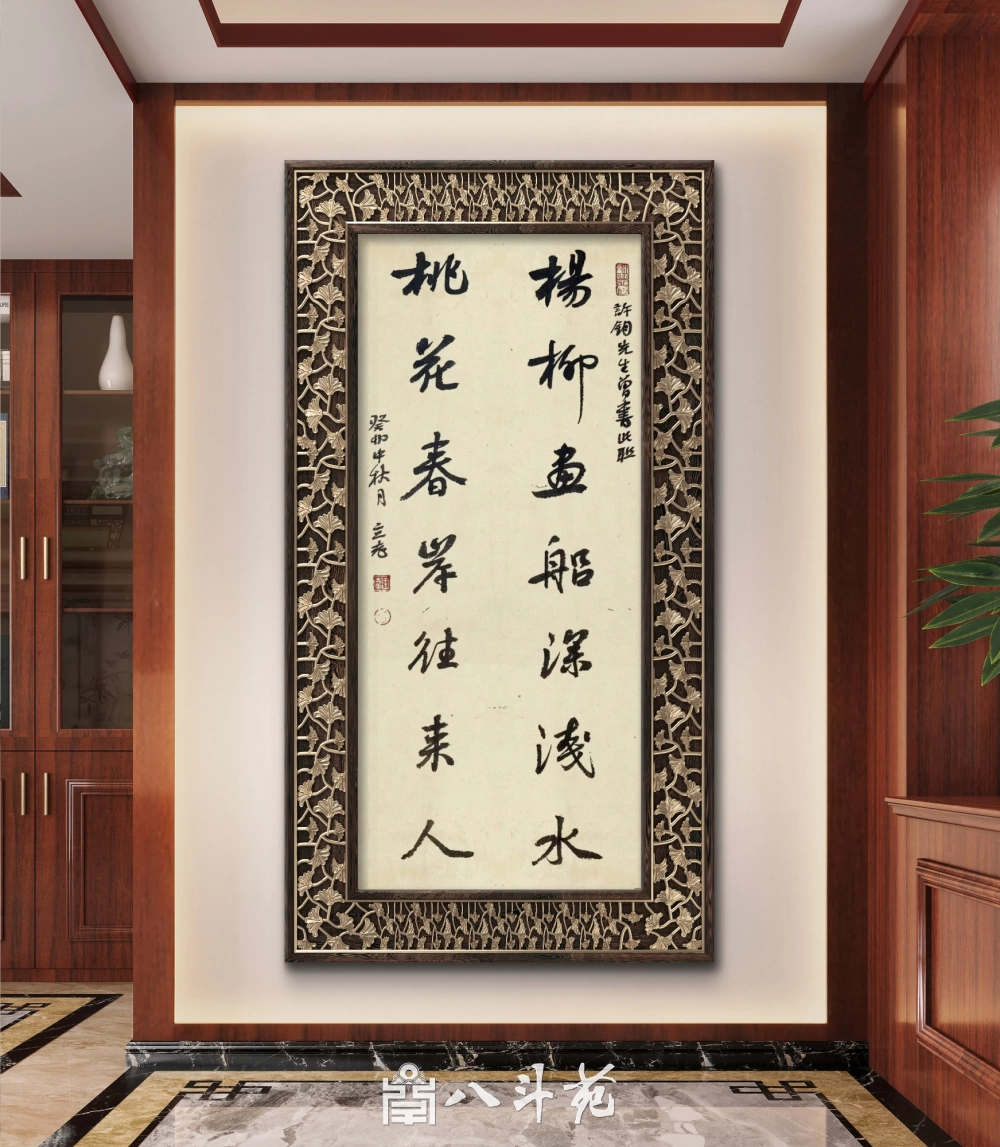 許鈞先生曾書此聯
楊柳畫船深淺水
桃花春岸往來人
癸卯中秋月 立
八斗苑